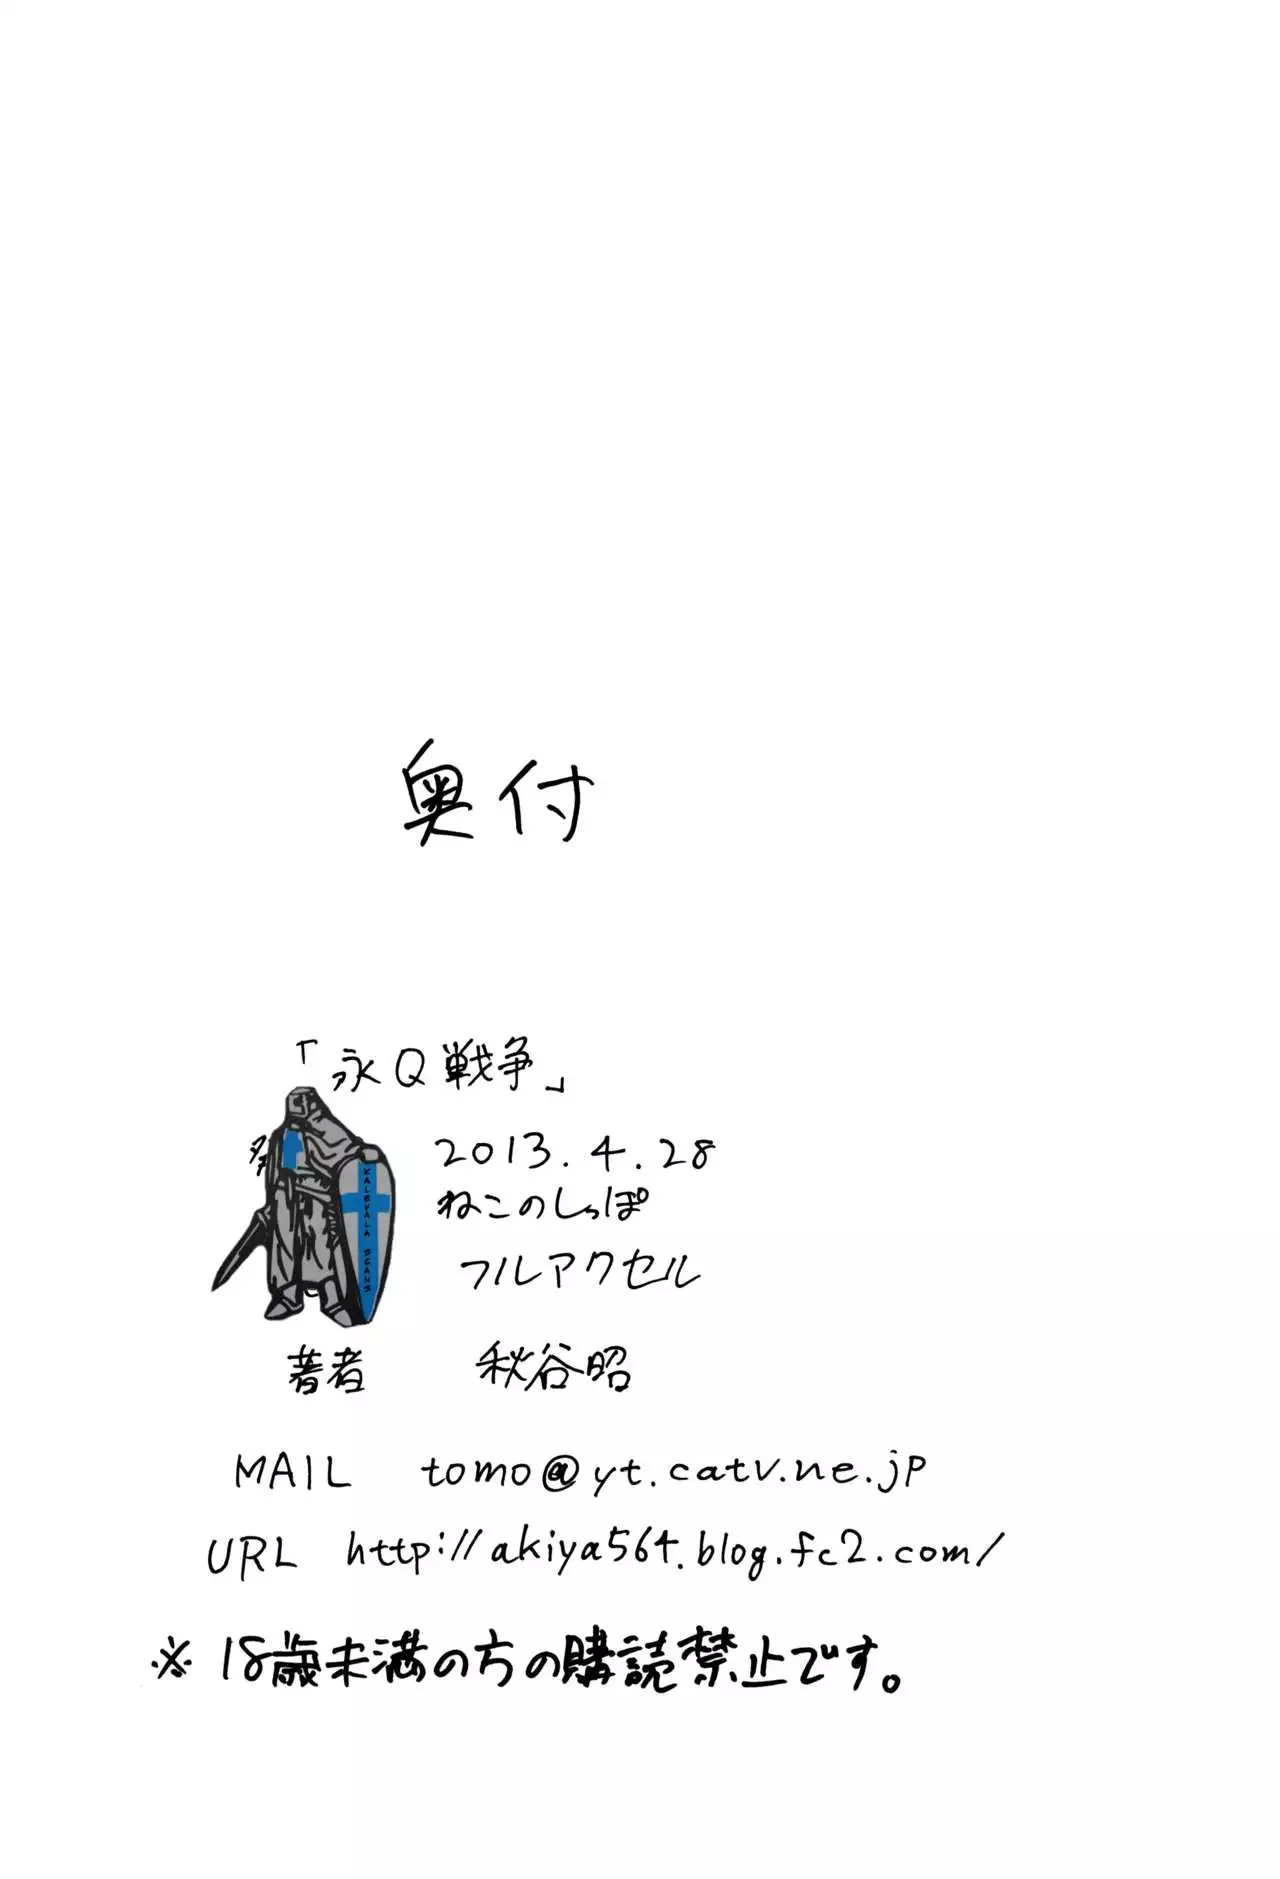 奥付
「永Q戦争」
2013.4.28
ねこのしっぽ
フルアクセル
KALEVALA SCANS
著者 秋谷昭
MAIL tomo@yt.catv.ne.jp
URL http://akiya564.blog.fc2.com/
※18歳未満の方の購読禁止です。